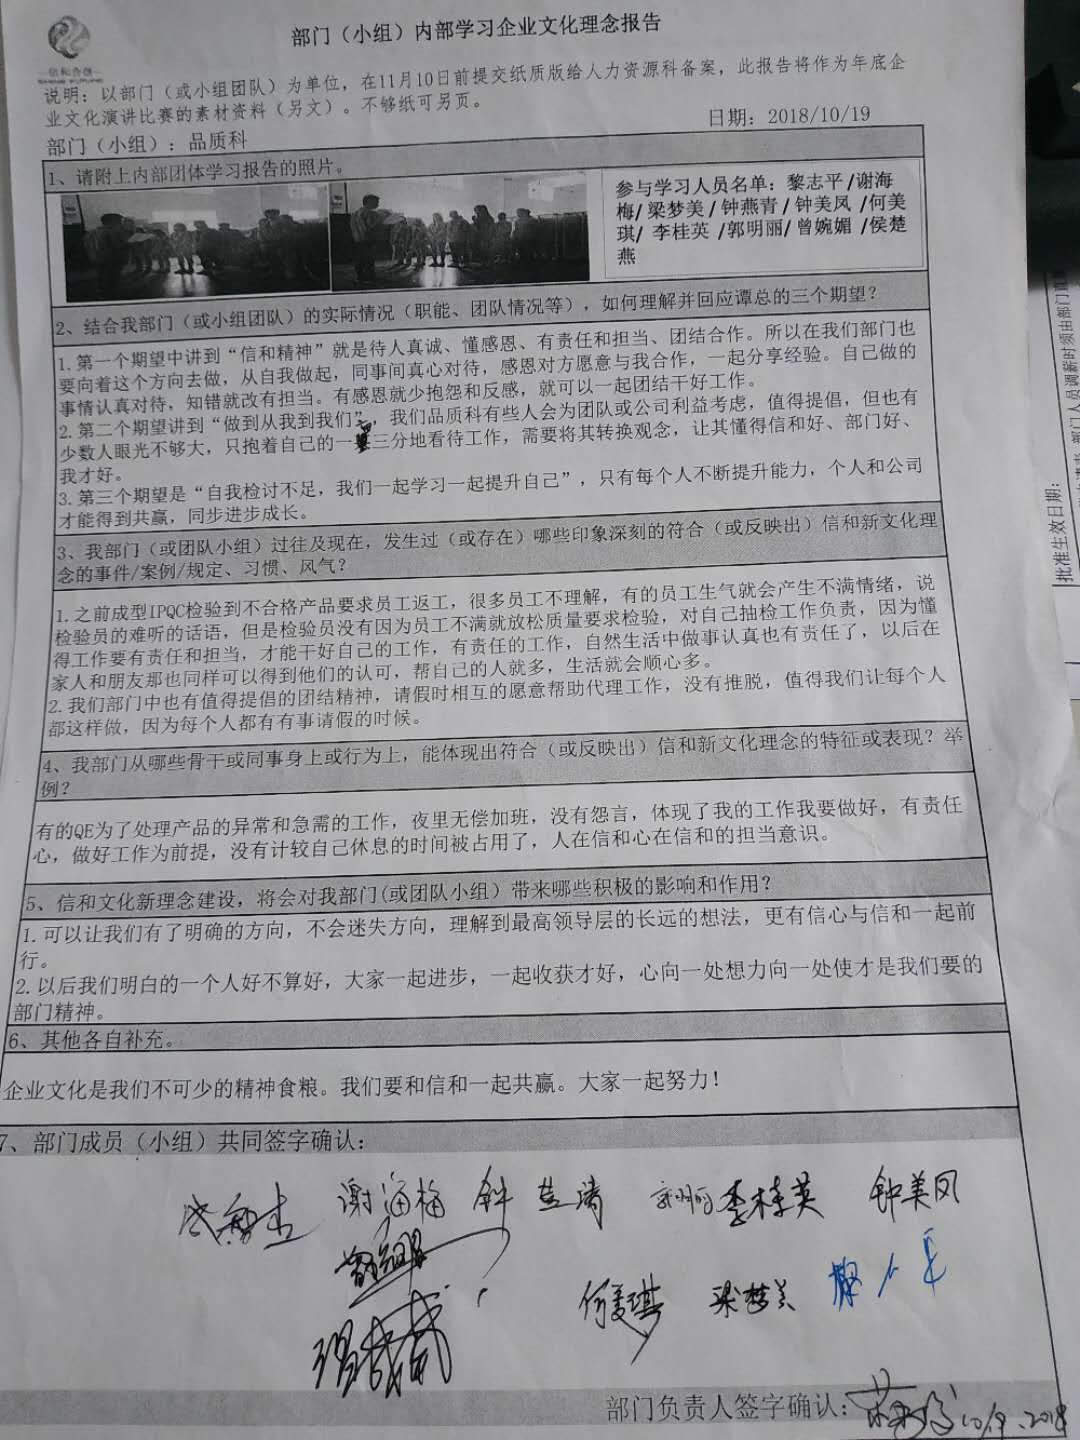 部门（小组）内部学习企业文化理念报告
信和合创
说明：以部门（或小组团队）为单位，在11月10日前提交纸质版给人力资源科备案，此报告将作为年底企
业文化演讲比赛的素材资料（另文）。不够纸可另页。
日期：2018/10/19
部门（小组）：品质科
1、请附上内部团体学习报告的照片。
参与学习人员名单：黎志平/谢海
梅/梁梦美/钟燕青/钟美凤/何美
琪/ 李桂英/郭明丽/曾婉媚/侯楚
燕
2、结合我部门（或小组团队）的实际情况（职能、团队情况等），如何理解并回应谭总的三个期望？
1.第一个期望中讲到“信和精神”就是待人真诚、懂感恩、有责任和担当、团结合作。所以在我们部门也
要向着这个方向去做，从自我做起，同事间真心对待，感恩对方愿意与我合作，一起分享经验。自己做的
事情认真对待，知错就改有担当。有感恩就少抱怨和反感，就可以一起团结干好工作。
2.第二个期望讲到“做到从我到我们”，我们品质科有些人会为团队或公司利益考虑，值得提倡，但也有
少数人眼光不够大，只抱着自己的一三分地看待工作，需要将其转换观念，让其懂得信和好、部门好、
我才好。
3.第三个期望是“自我检讨不足，我们一起学习一起提升自己”，只有每个人不断提升能力，个人和公司
才能得到共赢，同步进步成长。
3、我部门（或团队小组）过往及现在，发生过（或存在）哪些印象深刻的符合（或反映出）信和新文化理
念的事件/案例/规定、习惯、风气？
1.之前成型IPQC检验到不合格产品要求员工返工，很多员工不理解，有的员工生气就会产生不满情绪，说
检验员的难听的话语，但是检验员没有因为员工不满就放松质量要求检验，对自己抽检工作负责，因为懂
得工作要有责任和担当，才能干好自己的工作，有责任的工作，自然生活中做事认真也有责任了，以后在
家人和朋友那也同样可以得到他们的认可，帮自己的人就多，生活就会顺心多。
2.我们部门中也有值得提倡的团结精神，请假时相互的愿意帮助代理工作，没有推脱，值得我们让每个人
都这样做，因为每个人都有有事请假的时候。
4、我部门从哪些骨干或同事身上或行为上，能体现出符合（或反映出）信和新文化理念的特征或表现？举
例？
有的QE为了处理产品的异常和急需的工作，夜里无偿加班，没有怨言，体现了我的工作我要做好，有责任
心，做好工作为前提，没有计较自己休息的时间被占用了，人在信和心在信和的担当意识。
5、信和文化新理念建设，将会对我部门(或团队小组）带来哪些积极的影响和作用？
1.可以让我们有了明确的方向，不会迷失方向，理解到最高领导层的长远的想法，更有信心与信和一起前
行。
2.以后我们明白的一个人好不算好，大家一起进步，一起收获才好，心向一处想力向一处使才是我们要的
部门精神。
6、其他各自补充。
企业文化是我们不可少的精神食粮。我们要和信和一起共赢。大家一起努力！
7、部门成员（小组）共同签字确认：
谢海梅 李桂英 钟美凤
何美琪 梁梦美
部门负责人签字确认： 10/19.2018
批准生效日期：